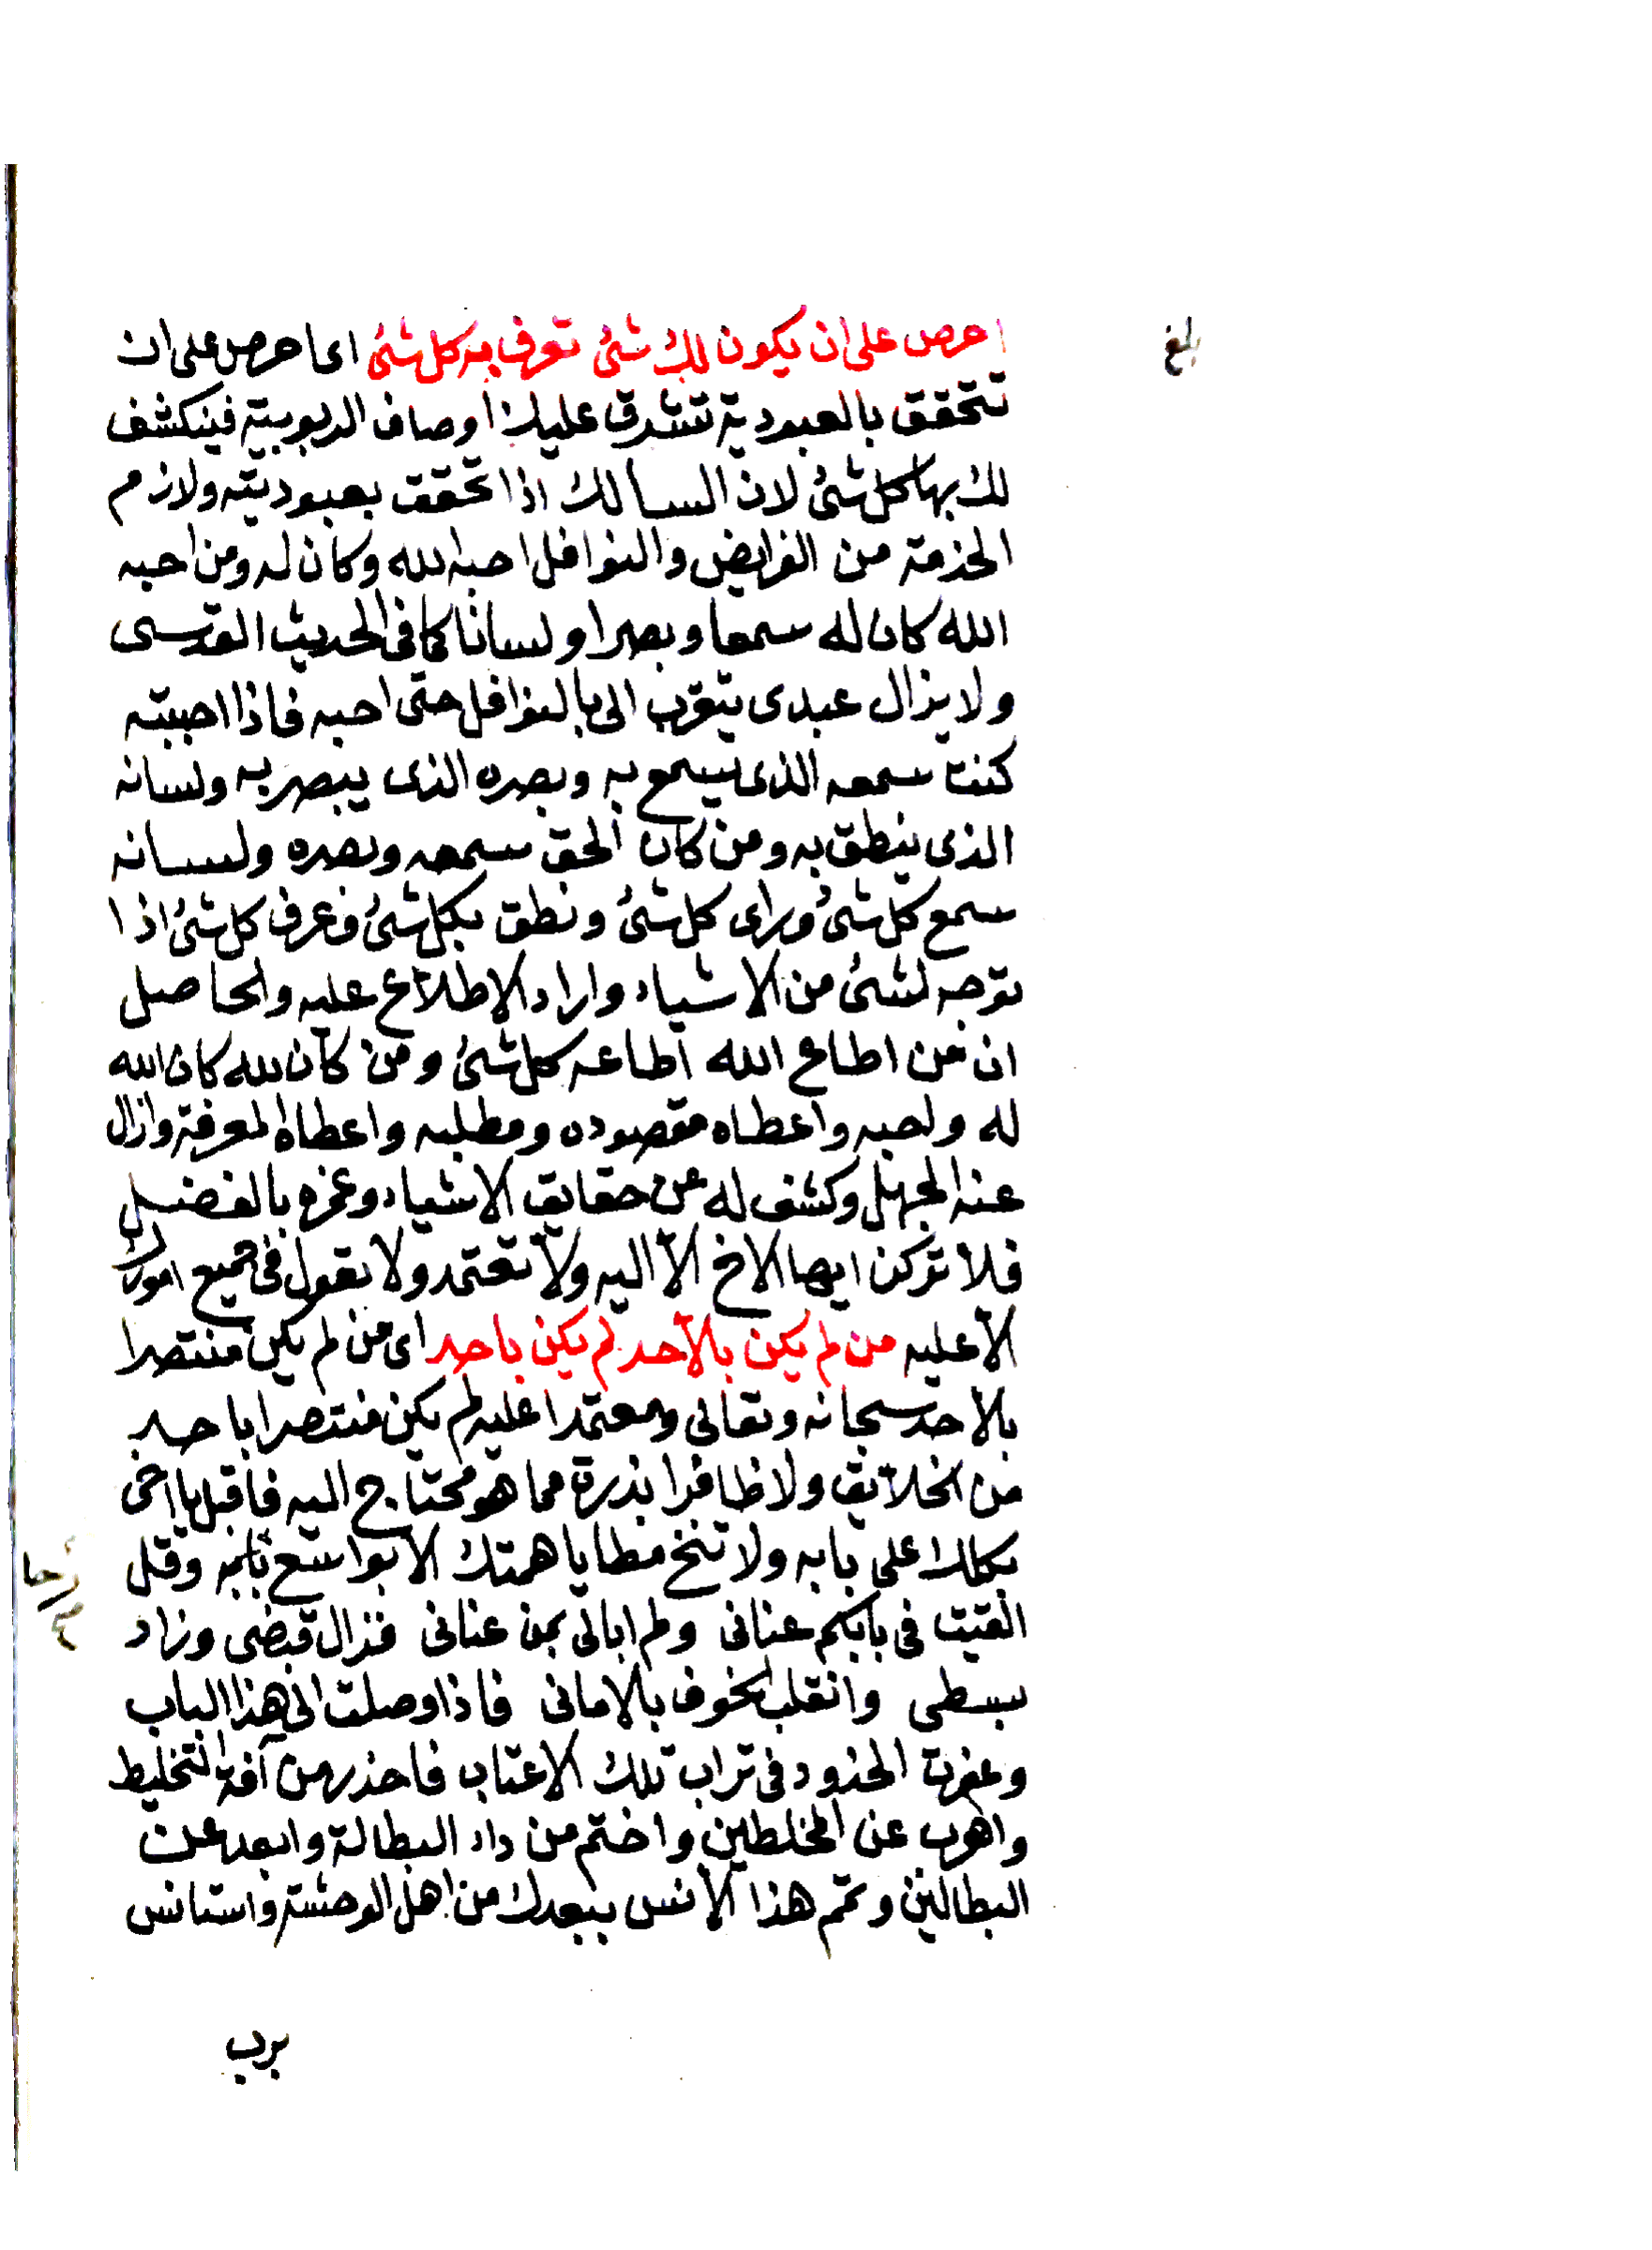 بلغ
احرص على ان يكون لك شئ تعرف به كل شئ اى احرص على ان
تتحقق بالعبودية تشرق عليك أوصاف الربوبية فينكشف
لك بها كل شئ لان السالك اذا تحقق بعبوديته ولازم
الخدمة من الفرايض والنوافل احبه الله وكان له ومن احبه
الله كان له سمعا وبصرا ولسانا كما فى الحديث القدسى
ولا يزال عبدى يتقرب الى بالنوافل حتى احبه فاذا احببته
كنت سمعه الذى يسمع به وبصره الذى يبصر به ولسانه
الذى ينطق به ومن كان الحق سمعه وبصره ولسانه
سمع كل شئ وراى كل شئ ونطق بكل شئ وعرف كل شئ اذا
توجه لشئ من الاشياء واراد الاطلاع عليه والحاصل
ان من اطاع الله اطاعه كل شئ ومن كان لله كان الله
له واحبه واعطاه مقصوده ومطلبه واعطاه المعرفة وازال
عنه الجهل وكشف له عن حقايق الاشياء وغمره بالفضل
فلا تركن ايها الاخ الا اليه ولا تعتمد ولا تعول فى جميع امورك
الا عليه من لم يكن بالأحد لم يكن باحد اى من لم يكن منتصرا
بالاحد سبحانه وتعالى ومعتمدا عليه لم يكن منتصرا باحد
من الخلائق ولا ظافرا بذرة مما هو محتاج اليه فاقبل يا اخى
بكلك على بابه ولا تنخ مطايا همتك الا بواسع بابه وقل
القيت فى بابكم عنانى ولم ابالى بمن عنانى فزال قبضى وزاد
بسطى وانقلب الخوف بالامانى فاذا وصلت الى هذا الباب
وعفرت الخدود فى تراب تلك الاعتاب فاحذر من آفة التخليط
واهرب عن المخلطين واختم من دار البطالة وابعد عن
البطالين وتمم هذا الانس ببعدك من اهل الوحشة واستانس
برب